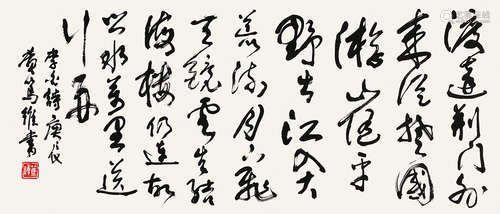 渡遠荆門外
来從楚國
遊山随平
野尽江入大
荒流月下飛
天鏡雲生結
海樓仍連故
鄉水萬里送
行舟
李白詩 庚辰
黄篤維書